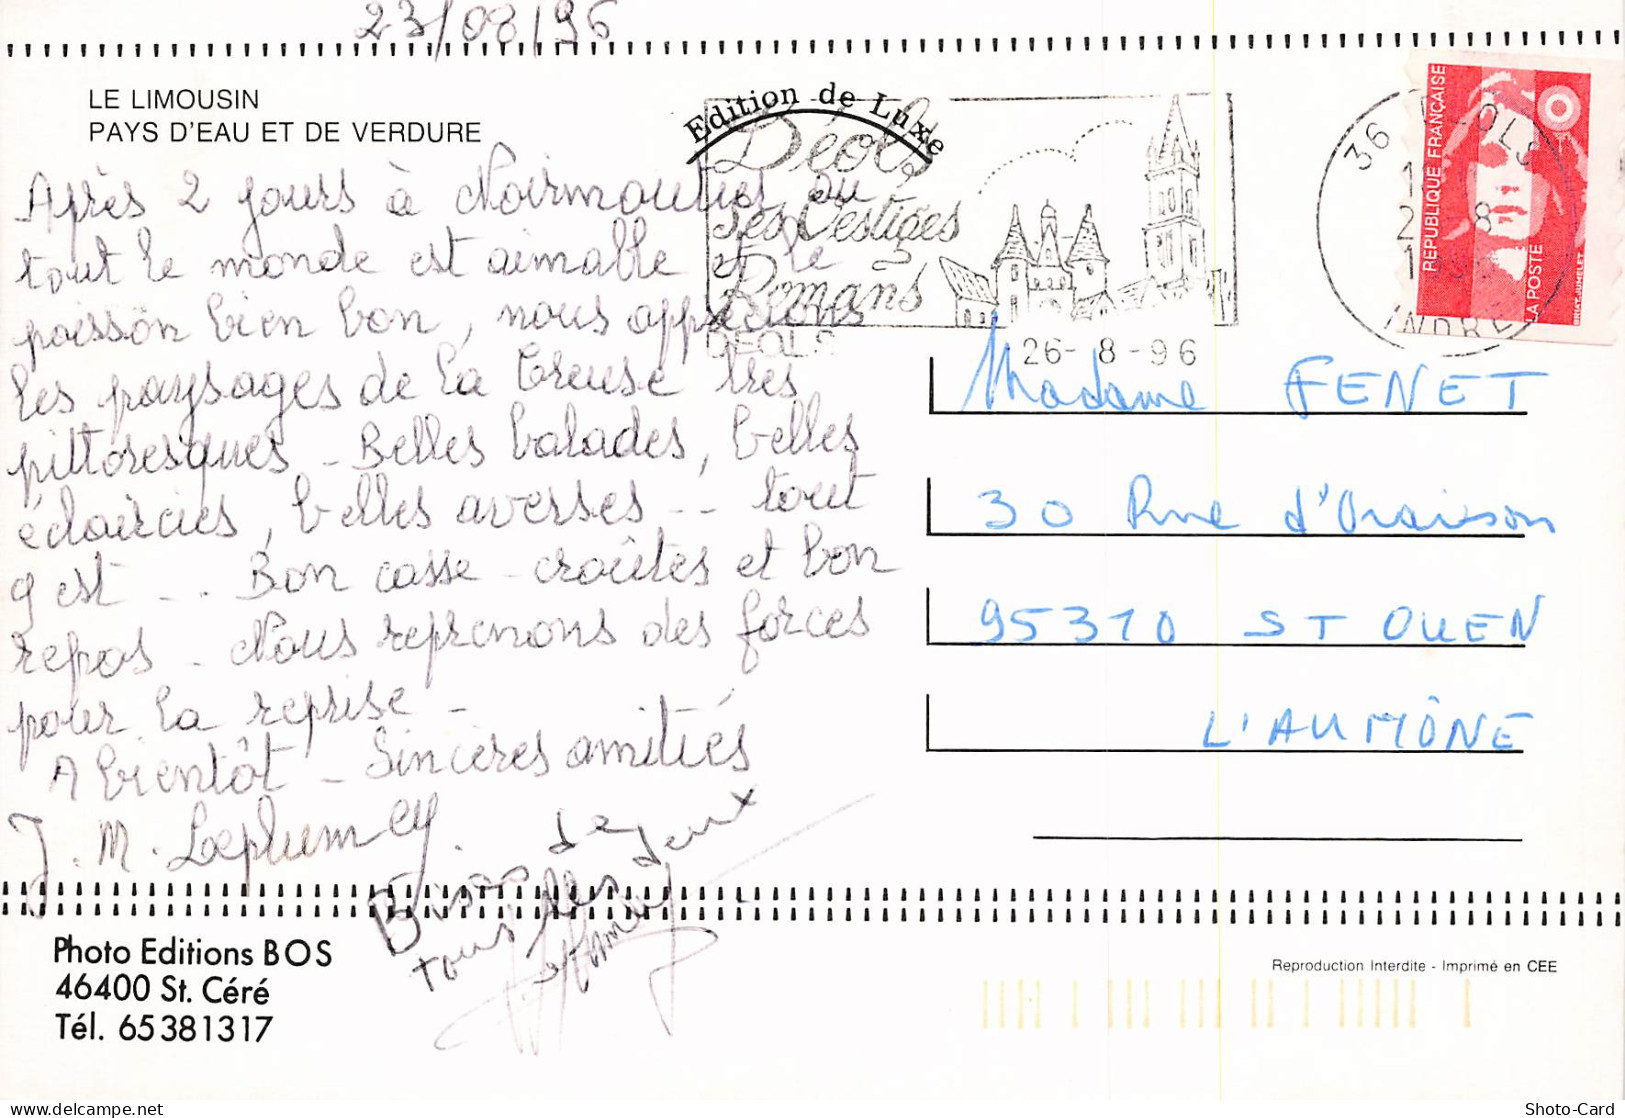 23/08/96
LE LIMOUSIN
PAYS D'EAU ET DE VERDURE
Edition de Luxe
Déols
ses Vestiges
Romans
DEOLS
26-8-96
36 DEOLS
INDRE
REPUBLIQUE FRANÇAISE
LA POSTE
Après 2 jours à Noirmoutier où
tout le monde est aimable et le
poisson bien bon, nous apprécions
les paysages de la Creuse très
pittoresques - Belles balades, belles
éclaircies, belles averses -- tout
y est -.. Bon casse-croûtes et bon
repos - Nous reprenons des forces
pour la reprise -
A bientôt - Sincères amitiés
J. M. Leplumey.
Bises de
tous les deux
Madame FENET
30 Rue d'Oraison
95310 ST OUEN
L'AUMÔNE
Photo Editions BOS
46400 St. Céré
Tél. 65381317
Reproduction Interdite - Imprimé en CEE
delcampe.net
Shoto-Card